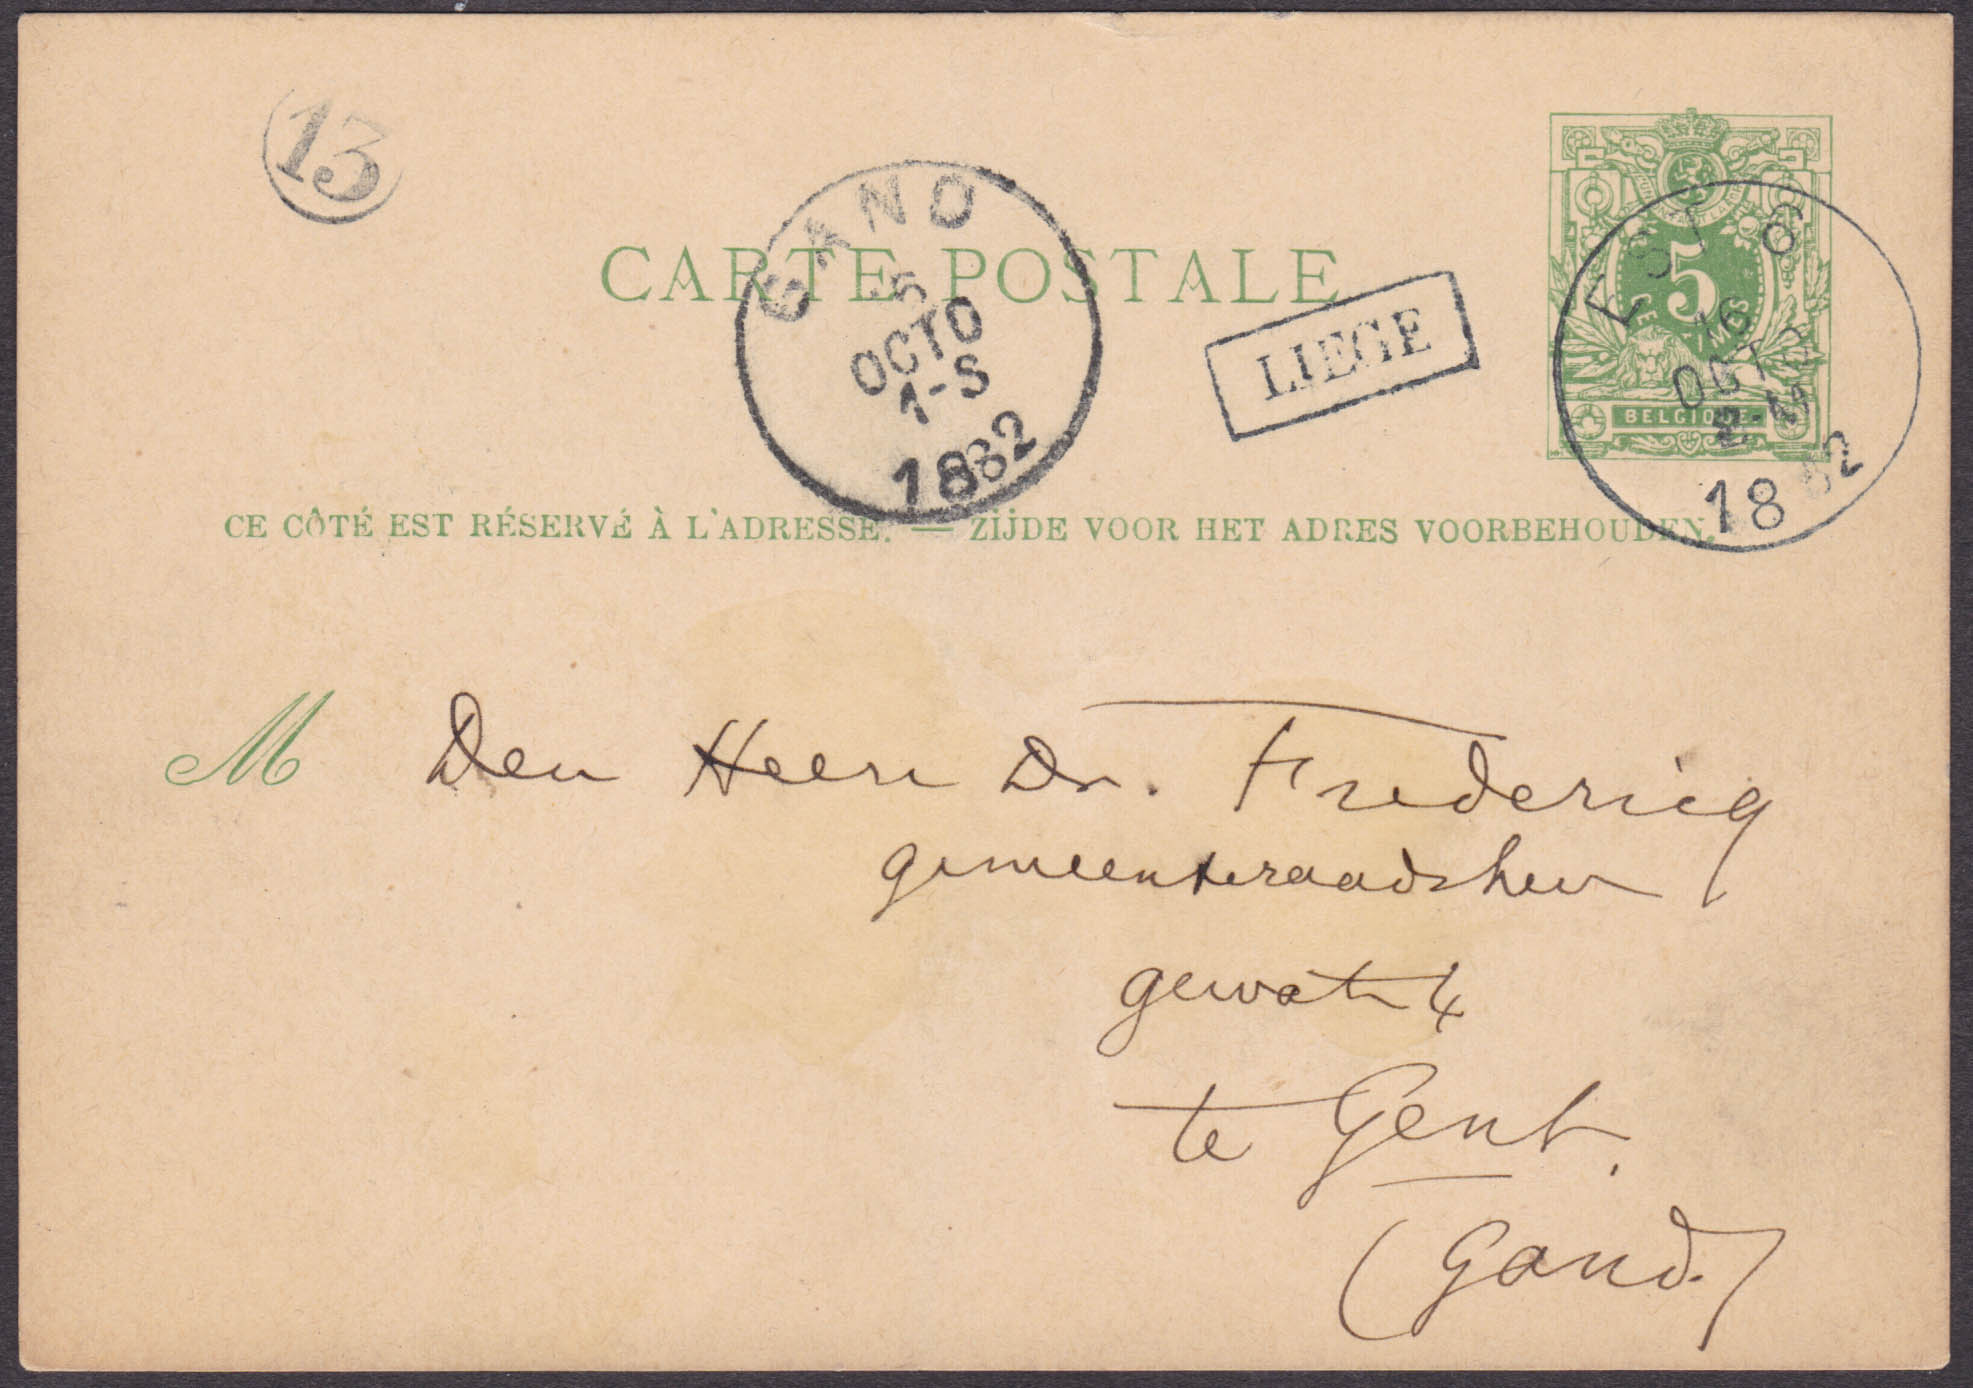 13
GAND
5
OCTO
1-S
1882
CARTE POSTALE
LIEGE
5
BELGIQUE
EST 6
16
OCT
18 82
CE CÔTÉ EST RÉSERVÉ À L'ADRESSE. — ZIJDE VOOR HET ADRES VOORBEHOUDEN.
M Den Heere Dr. Fredericq
gemeenteraadsheer
te Gent.
(Gand.)